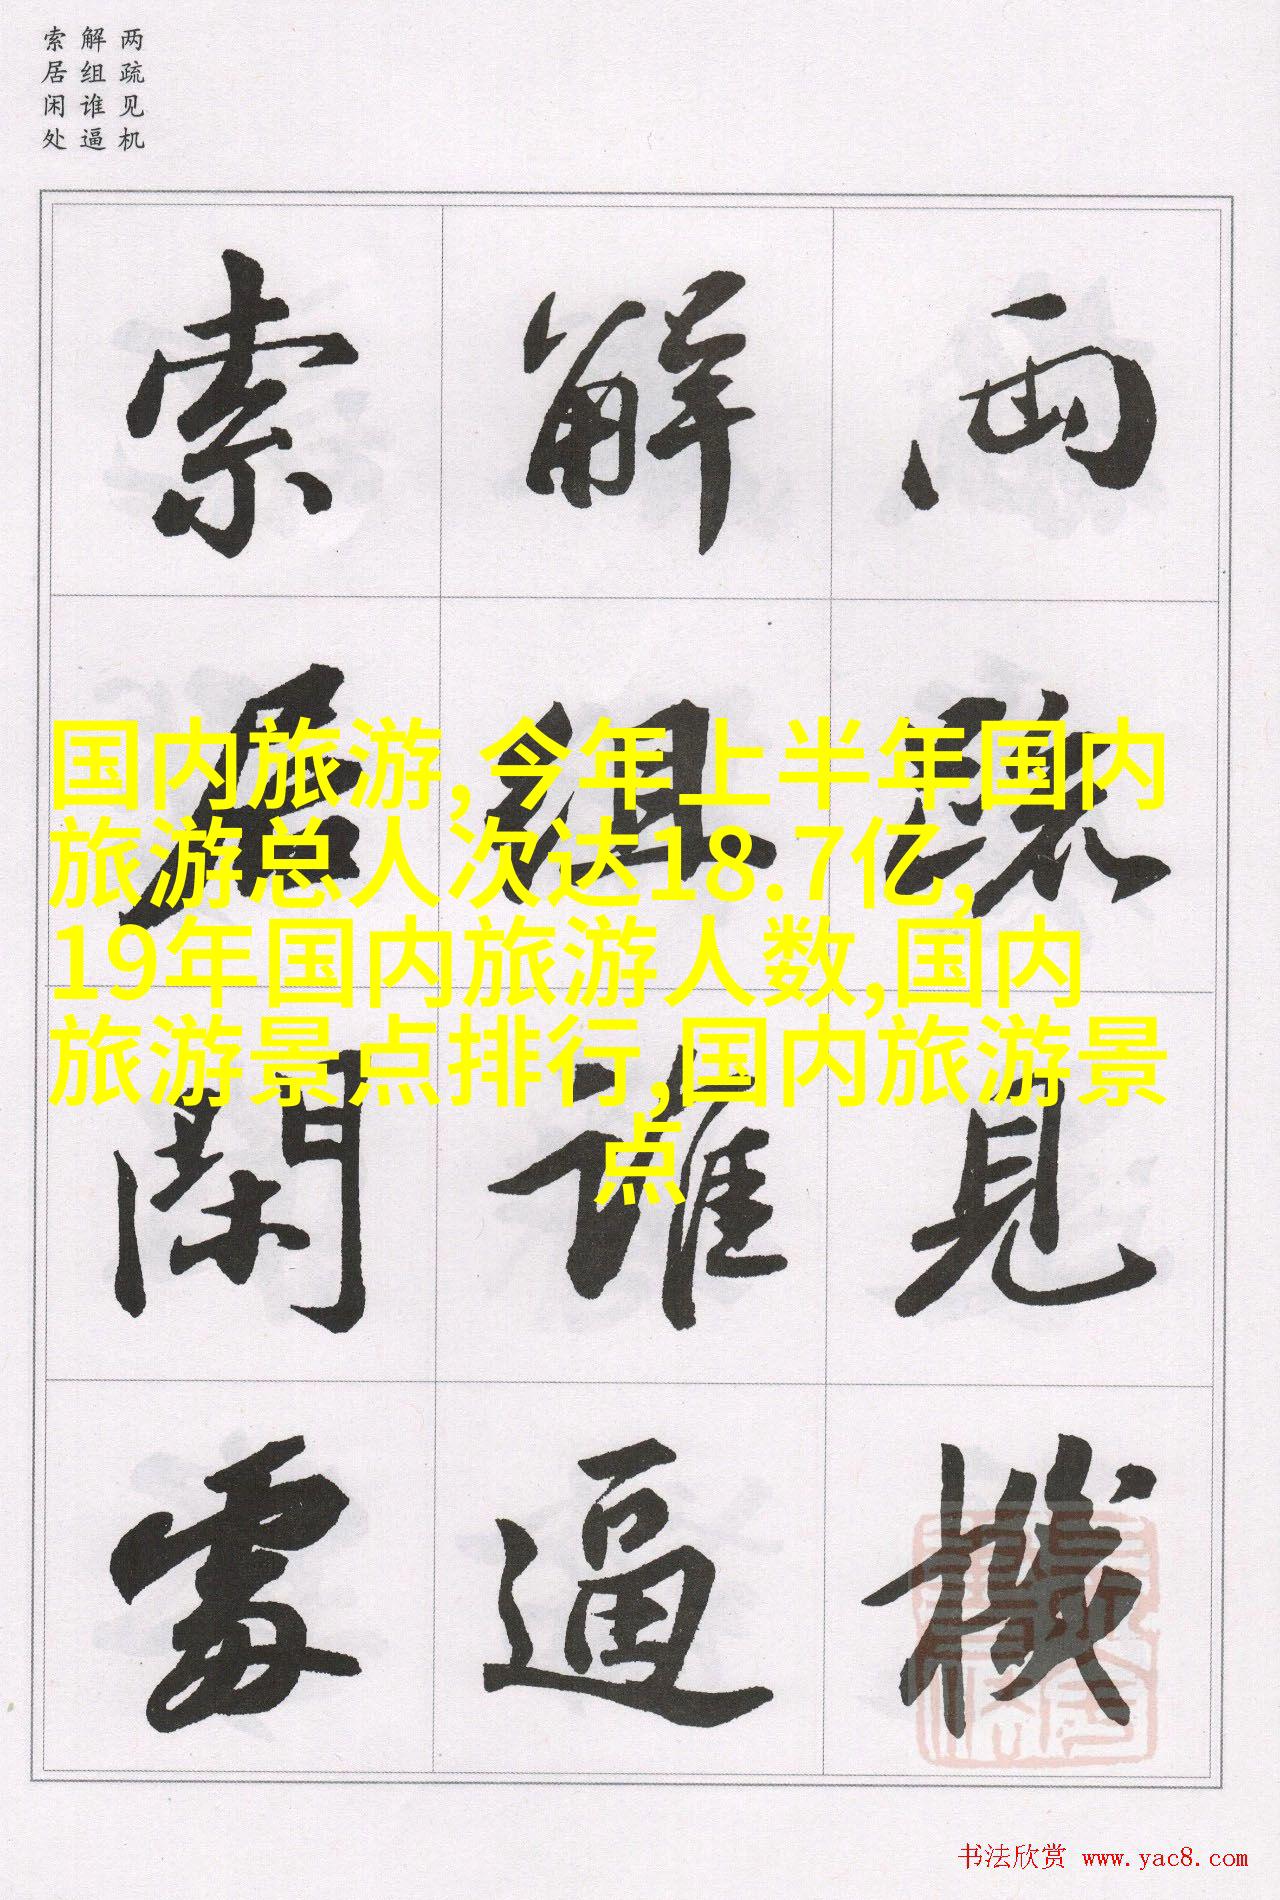 两疏见机
解组谁逼
索居闲处
兩疏見機
解組誰逼
索居閑處
国内旅游,今年上半年国内
旅游总人次达18.7亿,
19年国内旅游人数,国内
旅游景点排行,国内旅游景
点
书法欣赏 www.yac8.com